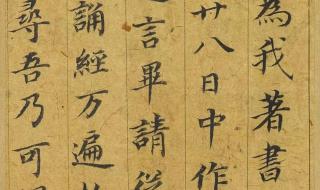 為我著書
廿八日中作
言畢請從
誦經万遍
尋吾乃可